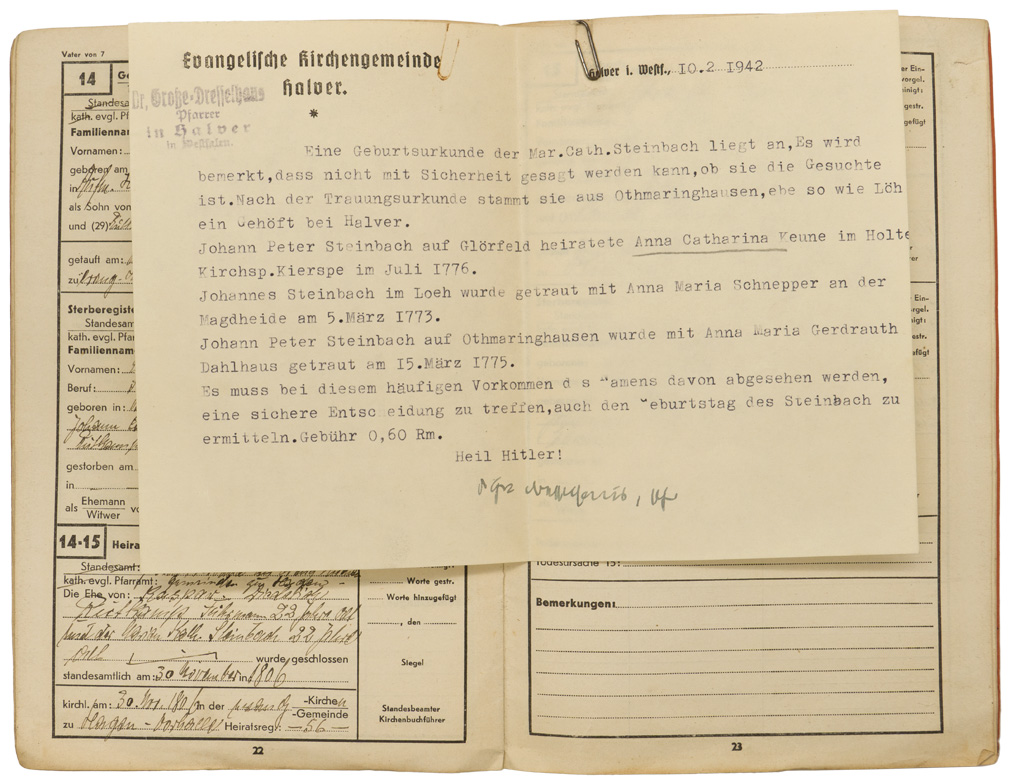 Vater von 7
14
Standesa
kath. evgl. Pf
Familiennar
Vornamen:
geboren am
in
als Sohn von
und (29)
getauft am:
zu
Sterberegiste
Standesam
kath. evgl. Pfar
Familiennam
Vornamen:
Beruf:
geboren in:
Johann
gestorben am
in
als Ehemann
Witwer
Evangelische Kirchengemeinde
Halver.
*
Dr. Große-Dresselhaus
Pfarrer
in Halver
in Westfalen.
Halver i. Westf., 10.2 1942
Eine Geburtsurkunde der Mar.Cath.Steinbach liegt an,Es wird
bemerkt,dass nicht mit Sicherheit gesagt werden kann,ob sie die Gesuchte
ist.Nach der Trauungsurkunde stammt sie aus Othmaringhausen,ebe so wie Löh
ein Gehöft bei Halver.
Johann Peter Steinbach auf Glörfeld heiratete Anna Catharina Keune im Holte
Kirchsp.Kierspe im Juli I776.
Johannes Steinbach im Loeh wurde getraut mit Anna Maria Schnepper an der
Magdheide am 5.März I773.
Johann Peter Steinbach auf Othmaringhausen wurde mit Anna Maria Gerdrauth
Dahlhaus getraut am I5.März I775.
Es muss bei diesem häufigen Vorkommen d s Namens davon abgesehen werden,
eine sichere Entsc eidung zu treffen,auch den Geburtstag des Steinbach zu
ermitteln.Gebühr 0,60 Rm.
Heil Hitler!
14-15 Heira
Standesamt:
kath. evgl. Pfarramt: Gemeinde zu Hagen
Die Ehe von: Kaspar Diedrich
22 Jahre alt
und der Maria Kath. Steinbach 22 Jahre
alt wurde geschlossen
standesamtlich am: 30 November in 1806
kirchl. am: 30. Nov. 1806 in der -Kirchen
-Gemeinde
zu Hagen - Heiratsreg.: 56
Worte gestr.
Worte hinzugefügt
, den
Siegel
Standesbeamter
Kirchenbuchführer
22
er Ein-
vorgel.
inigt:
gestr.
gefügt
Ein-
rgel.
nigt:
estr.
efügt
Todesursache 15:
Bemerkungen:
23